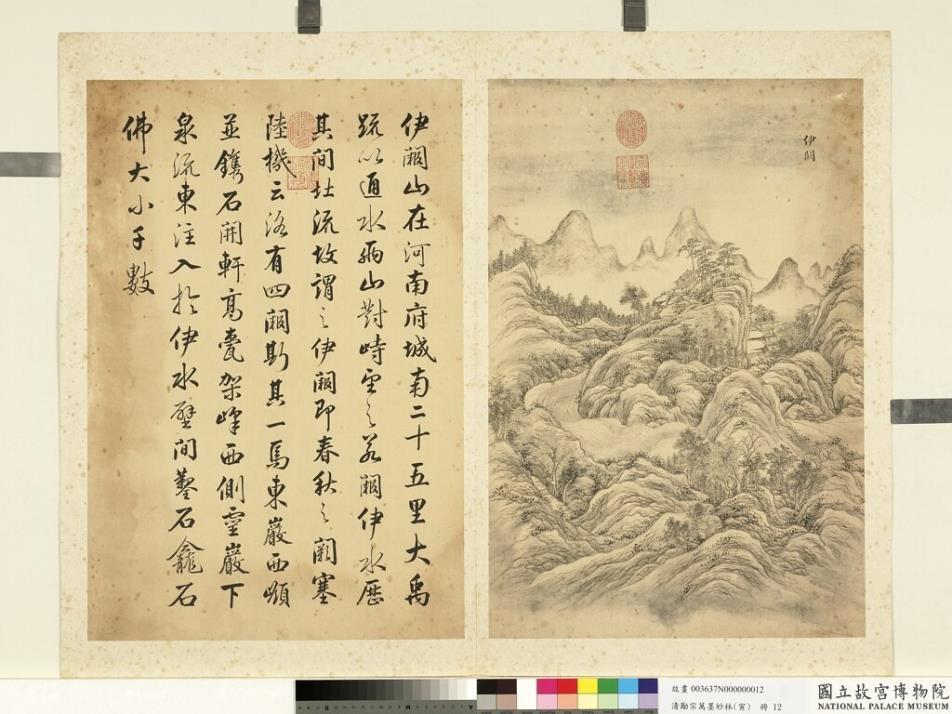 伊闕
伊闕山在河南府城南二十五里大禹
疏以通水兩山對峙望之若闕伊水歷
其間北流故謂之伊闕即春秋之闕塞
陸機云洛有四闕斯其一焉東巖西嶺
並鐫石開軒高甍架峰西側靈巖下
泉流東注入於伊水壁間鑿石龕石
佛大小千數
故畫 003637N000000012
清勵宗萬墨妙林(寅) 冊 12
國立故宮博物院
NATIONAL PALACE MUSEUM